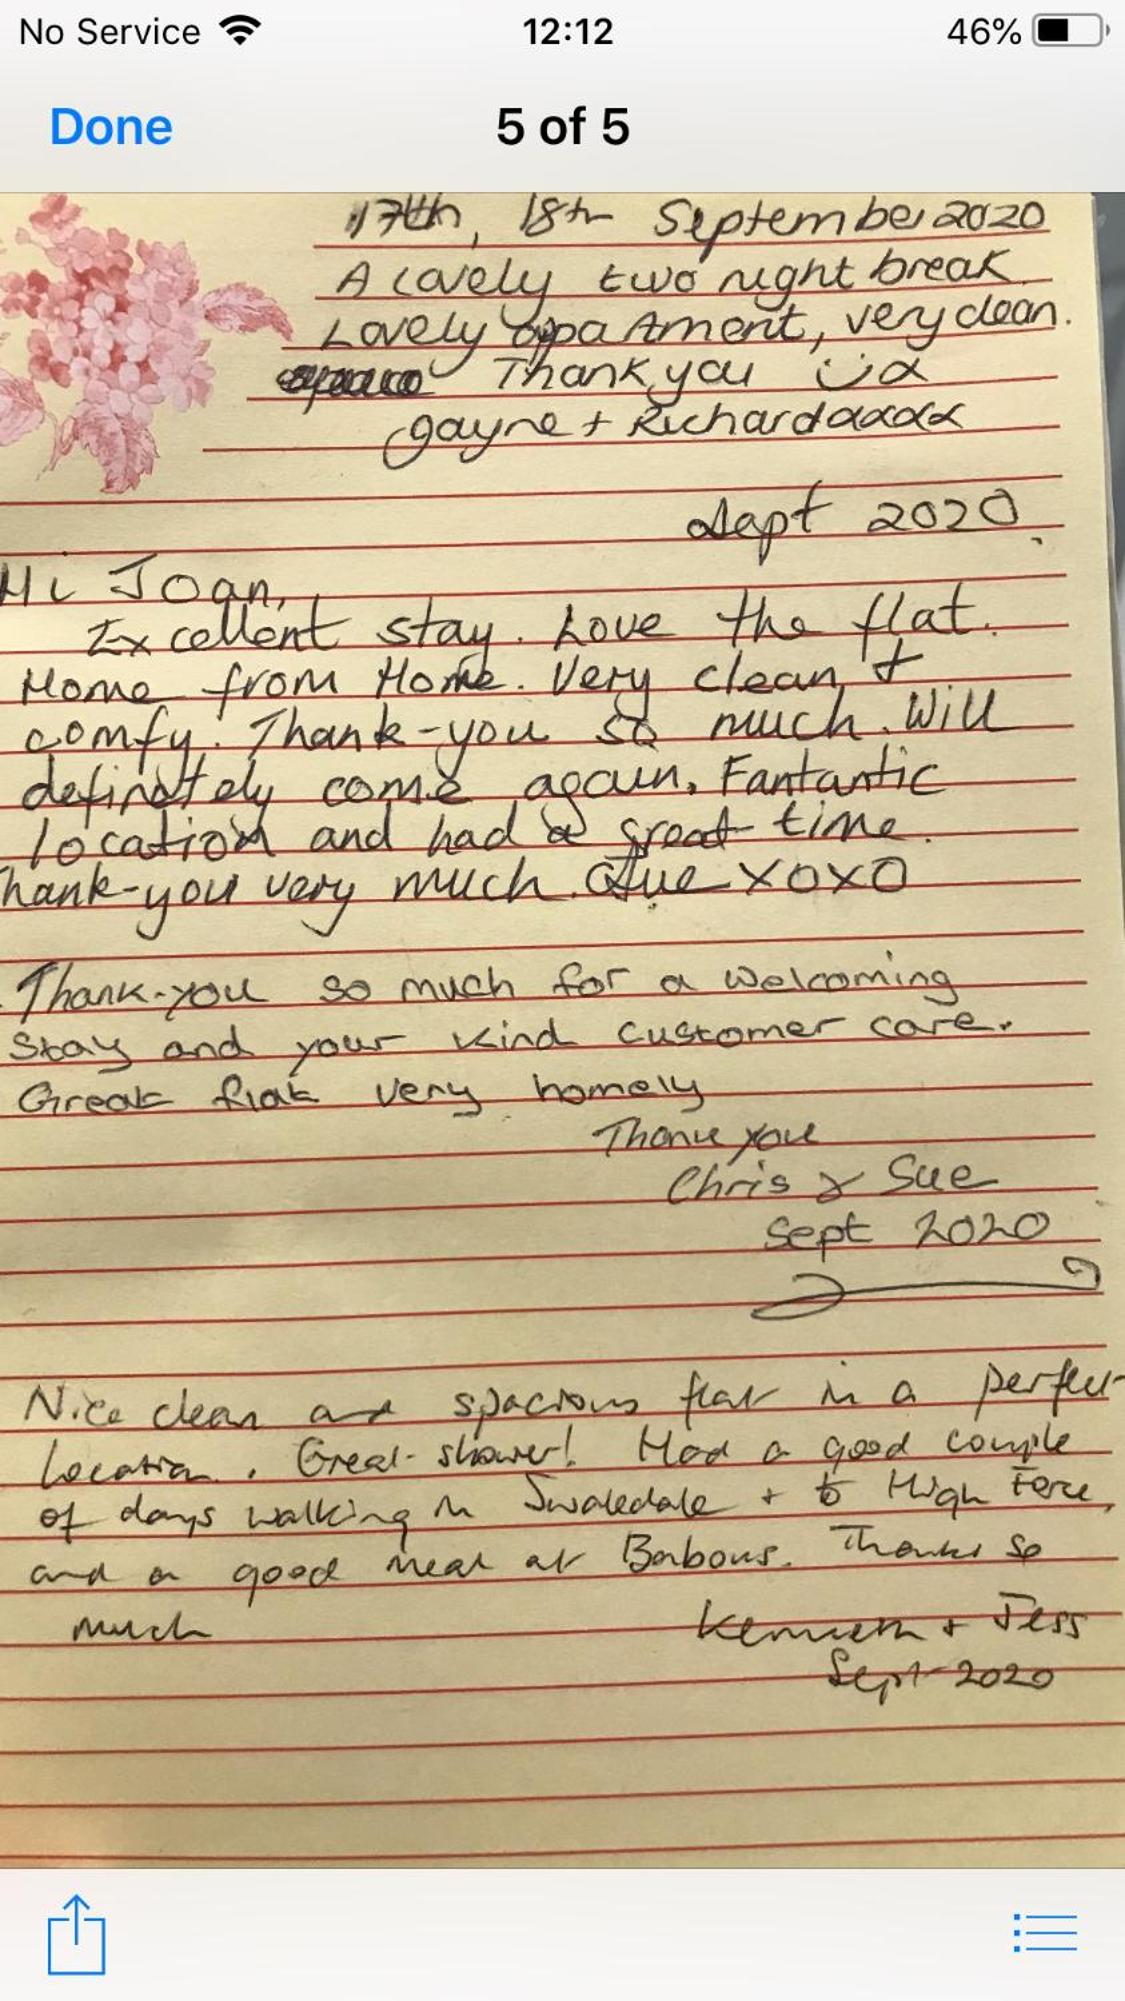 No Service 12:12 46%
Done 5 of 5
17th, 18th September 2020
A lovely two night break
Lovely appartment, very clean.
Thank you
Gayne + Richard xxxx
Sept 2020.
Hi Joan,
Excellent stay. Love the flat.
Home from Home. Very clean +
comfy. Thank-you so much. Will
definately come again. Fantantic
location and had a great time.
Thank-you very much. Sue XOXO
Thank-you so much for a welcoming
stay and your kind customer care.
Great flat very homely
Thank you
Chris & Sue
Sept 2020
Nice clean and spacious flat in a perfect
location. Great shower! Had a good couple
of days walking in Swaledale + to High Force,
and a good meal at Babouls. Thanks so
much Kenneth + Jess
Sept 2020